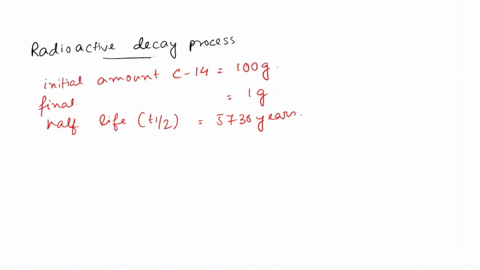 Radioactive decay process
initial amount C-14 = 100g.
final = 1g.
half life (t1/2) = 5730 years.